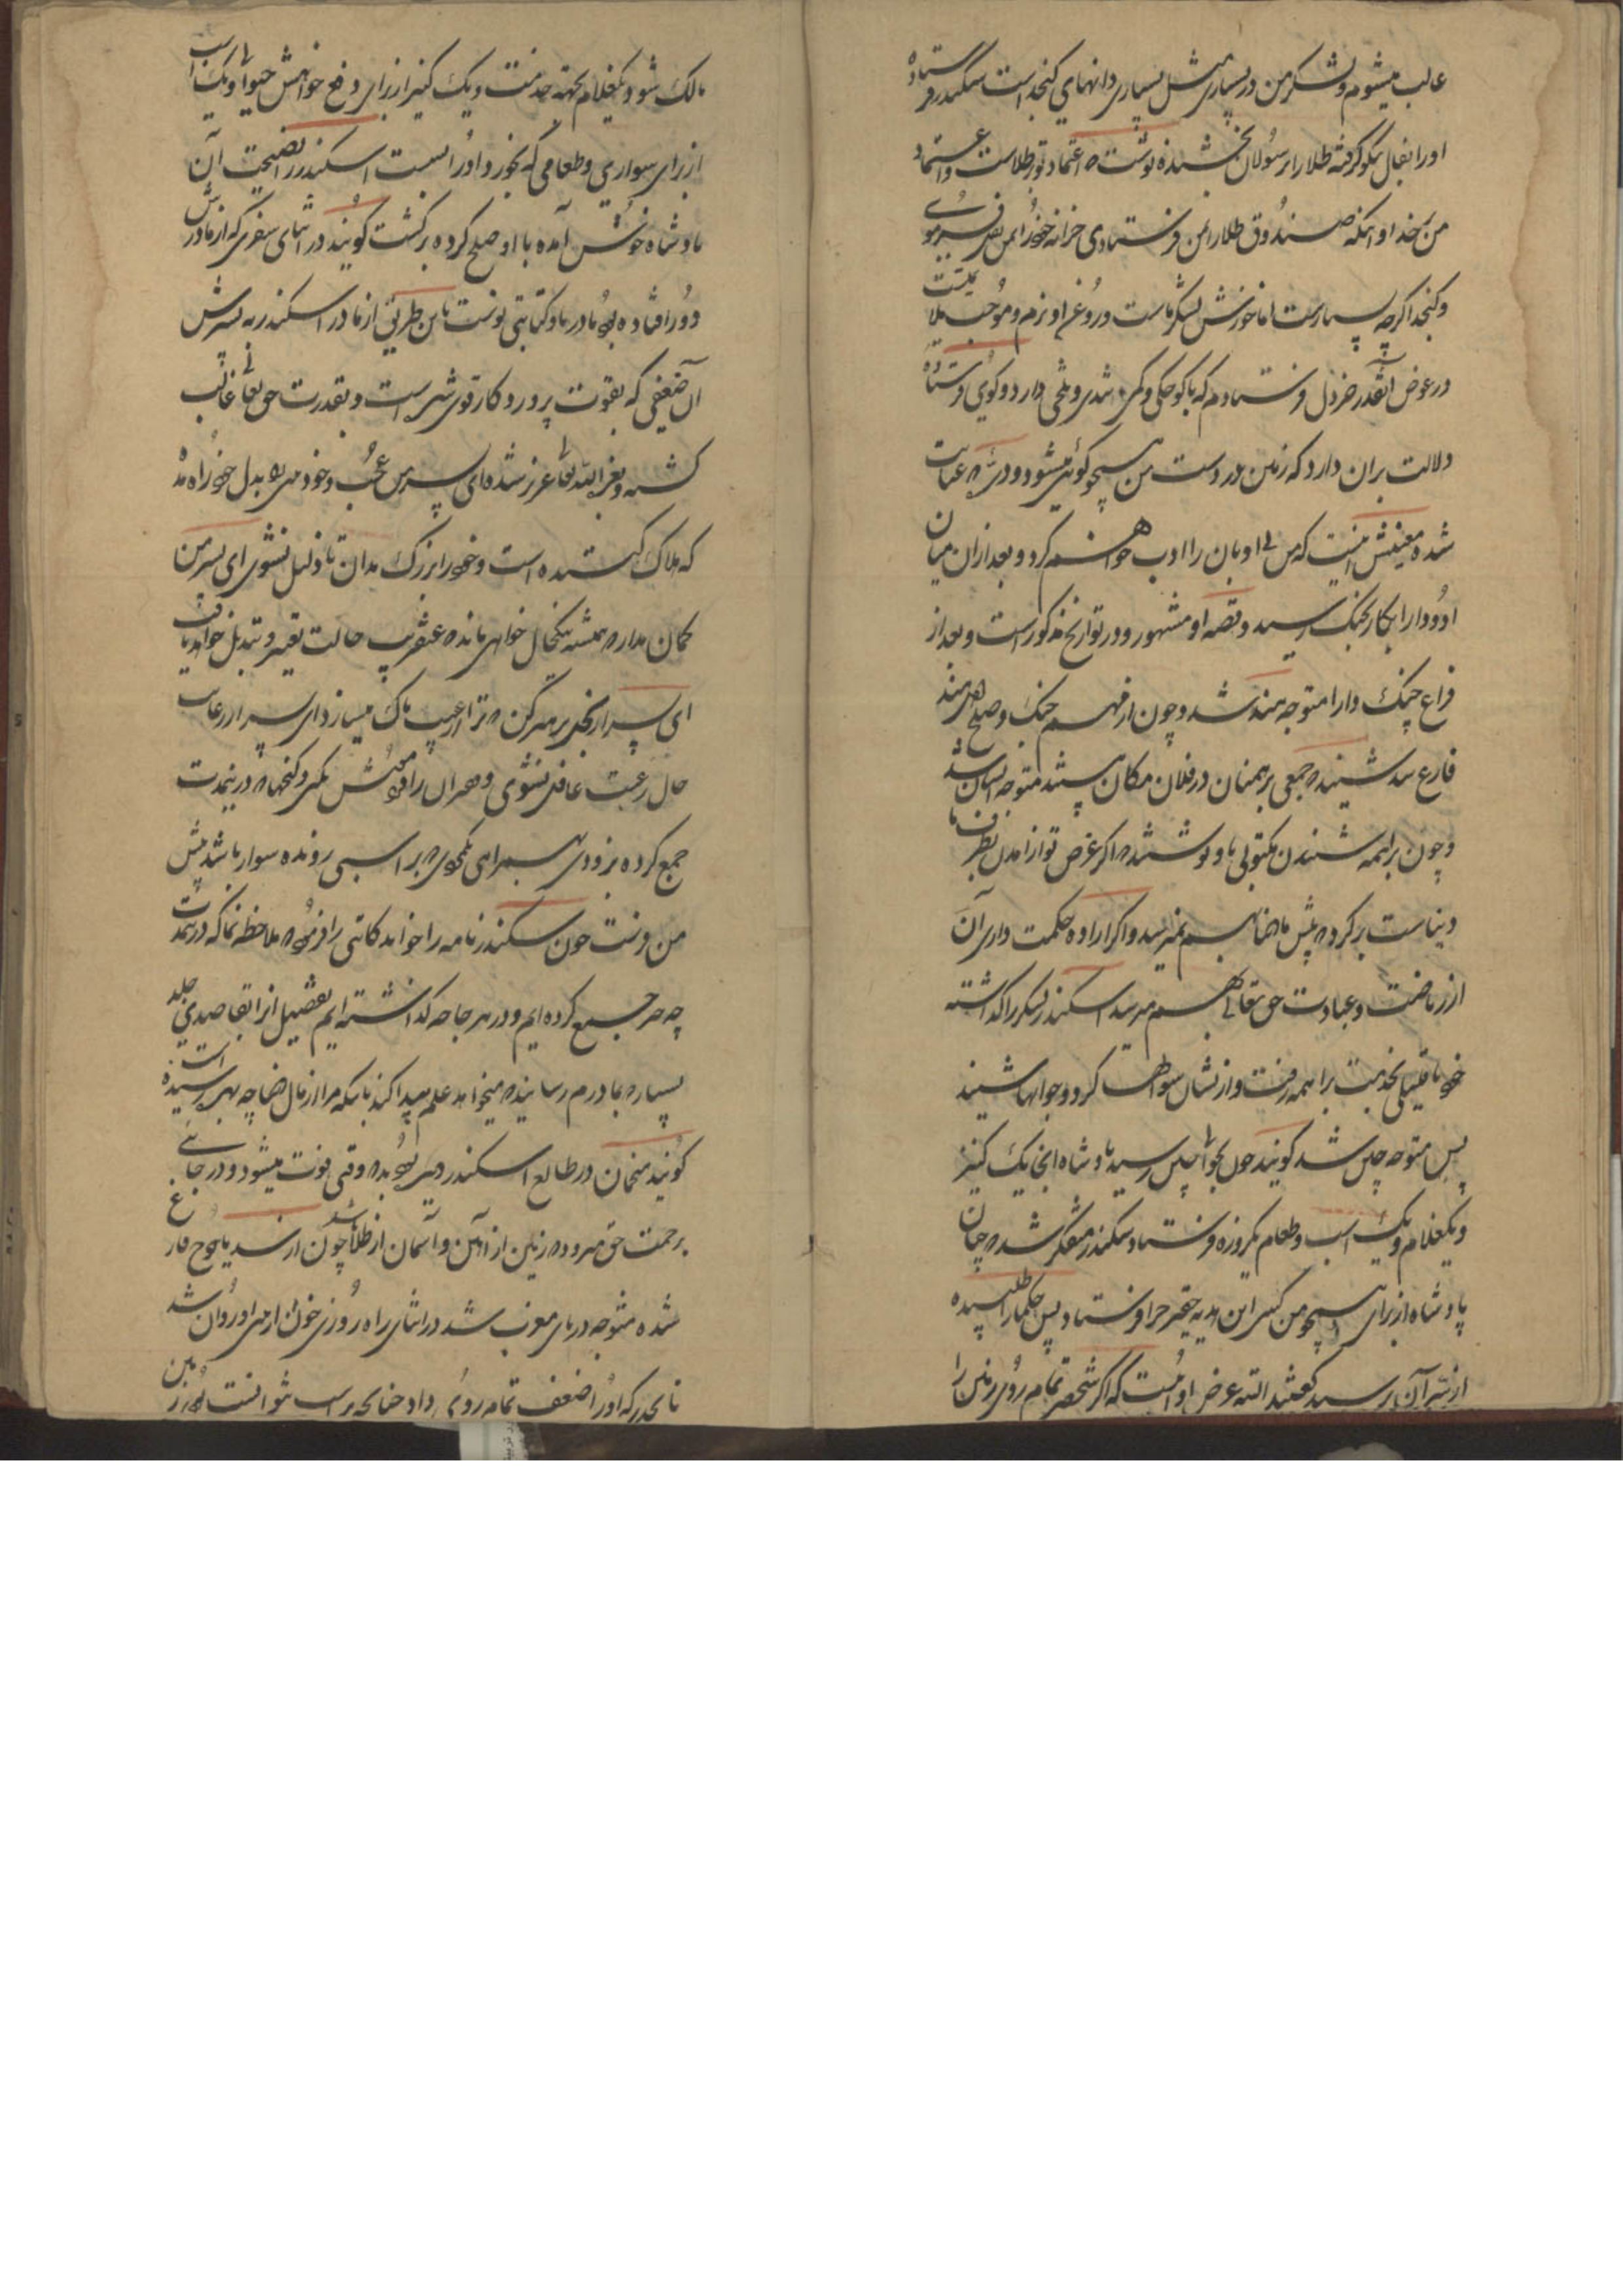 غالب میشوم و لشکر من در بسیاری مثل بسیاری دانهای کنجد است سکندر فرستاده
او را بفال نیکو گرفته طلا را بر سولان بخشنده نوشت که اعتماد تو بر طلاست و اعتماد
من بر خدا و آنکه صندوق طلا را بمن فرستادی خزانه خود را بمن
و کنجد اگرچه بسیارست اما خورش لشکر ماست و روغن او نرم و موجب
در عوض آنقدر خردل فرستادم که با کوچکی و کمی تندی و تلخی دارد و گوی فرستاده
دلالت بران دارد که زمین در دست من همچو گوئی میشود و
شده معنیش اینست که من بی ادبان را ادب خواهم کرد و بعد از ان میان
او و دارا کار بجنگ رسید و قصه او مشهور و در تواریخ مذکور است و بعد از
فراغ جنگ دارا متوجه هند شد و چون از مهم جنگ و صلح هند
فارغ شد شنید که جمعی برهمنان در فلان مکان هستند متوجه ایشان شد
و چون براهمه شنیدند مکتوبی باو نوشتند که اگر غرض تو از آمدن بطرف ما
دنیاست برگرد که پیش ما بهم نمیرسد و اگر اراده حکمت داری آن
از ریاضت و عبادت حق تعالی بهم میرسد اسکندر لشکر را گذاشته
خود با قلیلی بخدمت براهمه رفت و از ایشان سوالها کرد و جوابها شنید
پس متوجه چین شد گویند چون بحوالی چین رسید پادشاه انجا یک کنیز
و یکغلام و یک اسب و طعام یکروزه فرستاد سکندر متفکر شد که چنان
پادشاه از برای همچو من کسی این هدیه حقیر چرا فرستاد پس حکما را طلبیده
از سر آن پرسید گفتند البته غرض او اینست که اگر شخصی تمام روی زمین را
مالک شود یکغلام بجهة خدمت و یک کنیز از برای دفع خواهش حیوانی و یک اسب
از برای سواری و طعامی که بخورد او را بست اسکندر را نصیحت آن
پادشاه خوش آمده با او صلح کرده برگشت گویند در اثنای سفری که از مادرش
دور افتاده بود مادر باو کتابتی نوشت باین طریق از مادر اسکندر به پسرش
آن ضعیفی که بقوت پروردگار قوی شده است و بقدرت حق تعالی غالب
گشته و بعز الله تعالی عزیز شده ای پسر من عجب و خود بدل خود راه مده
که هلاک کننده است و خود را بزرگ مدان تا ذلیل نشوی ای پسر من
گمان مدار که همیشه بیکحال خواهی ماند که عنقریب حالت تغییر و تبدیل خواهد یافت
ای پسر از بخل پرهیز کن که ترا از عیب پاک میسازد ای پسر از رعایت
حال رعیت غافل نشوی و گنجها که در ینمدت
جمع کرده بزودی همراه یکمرد که بر اسبی رونده سوار باشد پیش
من فرست چون اسکندر نامه را خواند کاتبی را فرمود که ملاحظه نما که در ینمدت
چه چیز جمع کرده ایم و در هر جا چه گذاشته ایم تفصیل انرا بقاصدی جلد
بسپار که بمادرم رساند که میخواهد علم پیدا کند باینکه مرا از مال دنیا چه بهم رسیده است
گویند منجمان در طالع اسکندر دیده بودند که وقتی فوت میشود و در جائی
برحمت حق میرود که زمین از آهن و آسمان از طلا باشد چون از سد یاجوج فارغ
شده متوجه دریای مغرب شد در اثنای راه روزی خون از بینی او روان شد
تا بحدیکه او را ضعف تمام روی داد چنانچه بر اسب نتوانست بود بر زمین